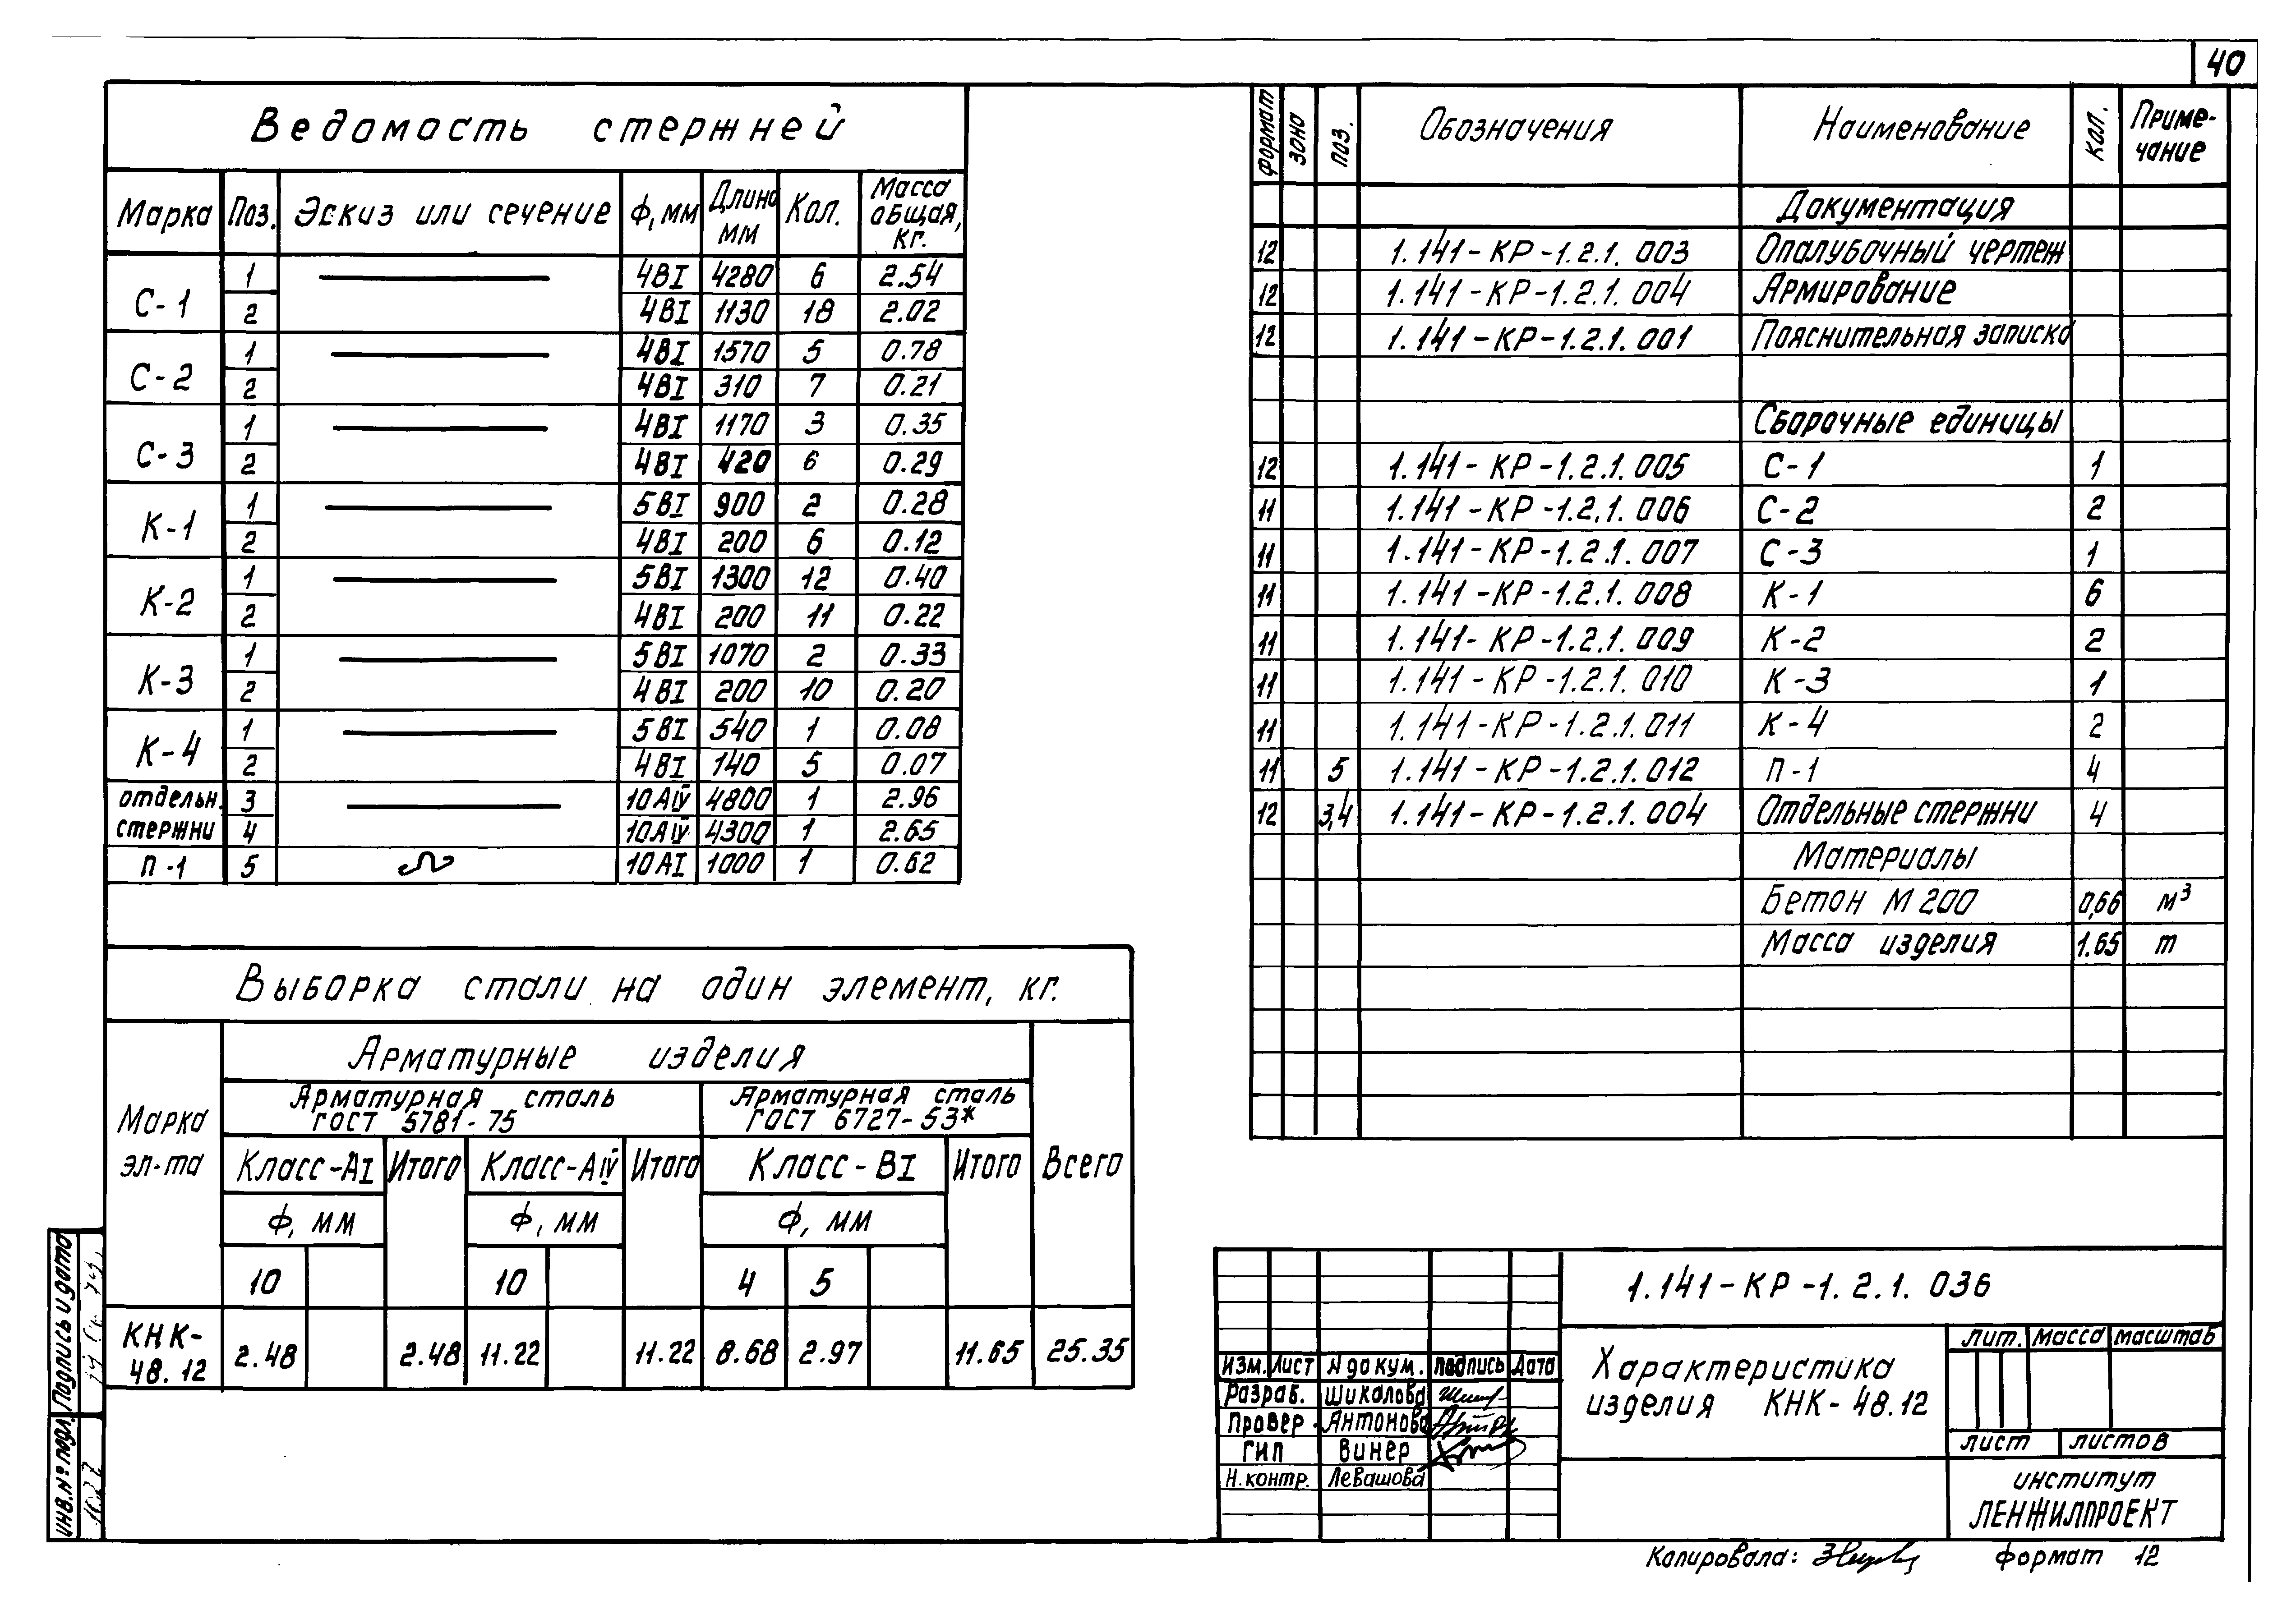 40
Ведомость стержней
Марка Поз. Эскиз или сечение ф, мм Длина мм Кол. Масса общая, кг.
С-1 1 4ВI 4280 6 2.54
2 4ВI 1130 18 2.02
С-2 1 4ВI 1570 5 0.78
2 4ВI 310 7 0.21
С-3 1 4ВI 1170 3 0.35
2 4ВI 420 6 0.29
К-1 1 5ВI 900 2 0.28
2 4ВI 200 6 0.12
К-2 1 5ВI 1300 12 0.40
2 4ВI 200 11 0.22
К-3 1 5ВI 1070 2 0.33
2 4ВI 200 10 0.20
К-4 1 5ВI 540 1 0.08
2 4ВI 140 5 0.07
отдельн. 3 10АIV 4800 1 2.96
стержни 4 10АIV 4300 1 2.65
П-1 5 10АI 1000 1 0.62
Выборка стали на один элемент, кг.
Марка эл-та
Арматурные изделия
Арматурная сталь ГОСТ 5781-75
Арматурная сталь ГОСТ 6727-53*
Класс-АI Итого Класс-АIV Итого Класс-ВI Итого Всего
ф, мм ф, мм ф, мм
10 10 4 5
КНК-48.12 2.48 2.48 11.22 11.22 8.68 2.97 11.65 25.35
Формат Зона Поз. Обозначения Наименование Кол. Примечание
Документация
12 1.141-КР-1.2.1.003 Опалубочный чертеж
12 1.141-КР-1.2.1.004 Армирование
12 1.141-КР-1.2.1.001 Пояснительная записка
Сборочные единицы
12 1.141-КР-1.2.1.005 С-1 1
11 1.141-КР-1.2.1.006 С-2 2
11 1.141-КР-1.2.1.007 С-3 1
11 1.141-КР-1.2.1.008 К-1 6
11 1.141-КР-1.2.1.009 К-2 2
11 1.141-КР-1.2.1.010 К-3 1
11 1.141-КР-1.2.1.011 К-4 2
11 5 1.141-КР-1.2.1.012 П-1 4
12 3,4 1.141-КР-1.2.1.004 Отдельные стержни 4
Материалы
Бетон М 200 0,66 м³
Масса изделия 1.65 т
1.141-КР-1.2.1.036
Изм. Лист N докум. подпись Дата
Разраб. Шикалова
Провер. Антонова
ГИП Винер
Н.контр. Левашова
Характеристика
изделия КНК-48.12
лит. масса масштаб
лист листов
институт
ЛЕНЖИЛПРОЕКТ
Копировала:
формат 12
Подпись и дата
ИНВ.№подл.